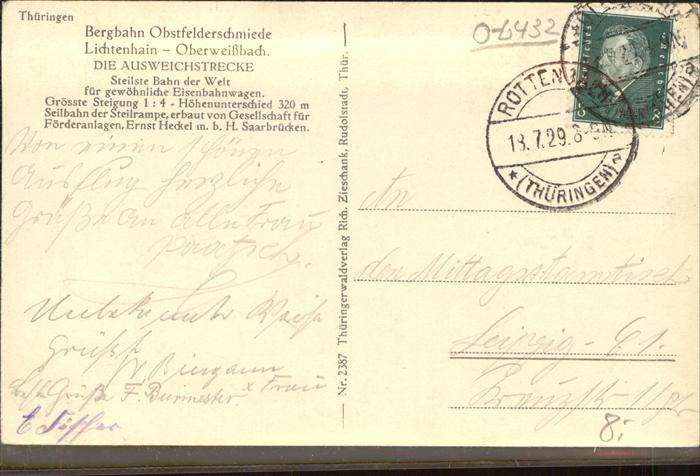 Thüringen
Bergbahn Obstfelderschmiede
Lichtenhain - Oberweißbach.
DIE AUSWEICHSTRECKE
Steilste Bahn der Welt
für gewöhnliche Eisenbahnwagen.
Grösste Steigung 1 : 4 - Höhenunterschied 320 m
Seilbahn der Steilrampe, erbaut von Gesellschaft für
Förderanlagen, Ernst Heckel m. b. H. Saarbrücken.
Von einem schönen
Ausflug herzliche
Grüße an alle Frau
Unbekannter Weise
Grüßt
x Frau
Beste Grüße F. Burmester
Nr. 2387 Thüringerwaldverlag Rich. Zieschank, Rudolstadt, Thür.
0-6432
18.7.29.
*(THÜRINGEN)
An
den Mittagsstammtisch
Leipzig - C1.
8,-